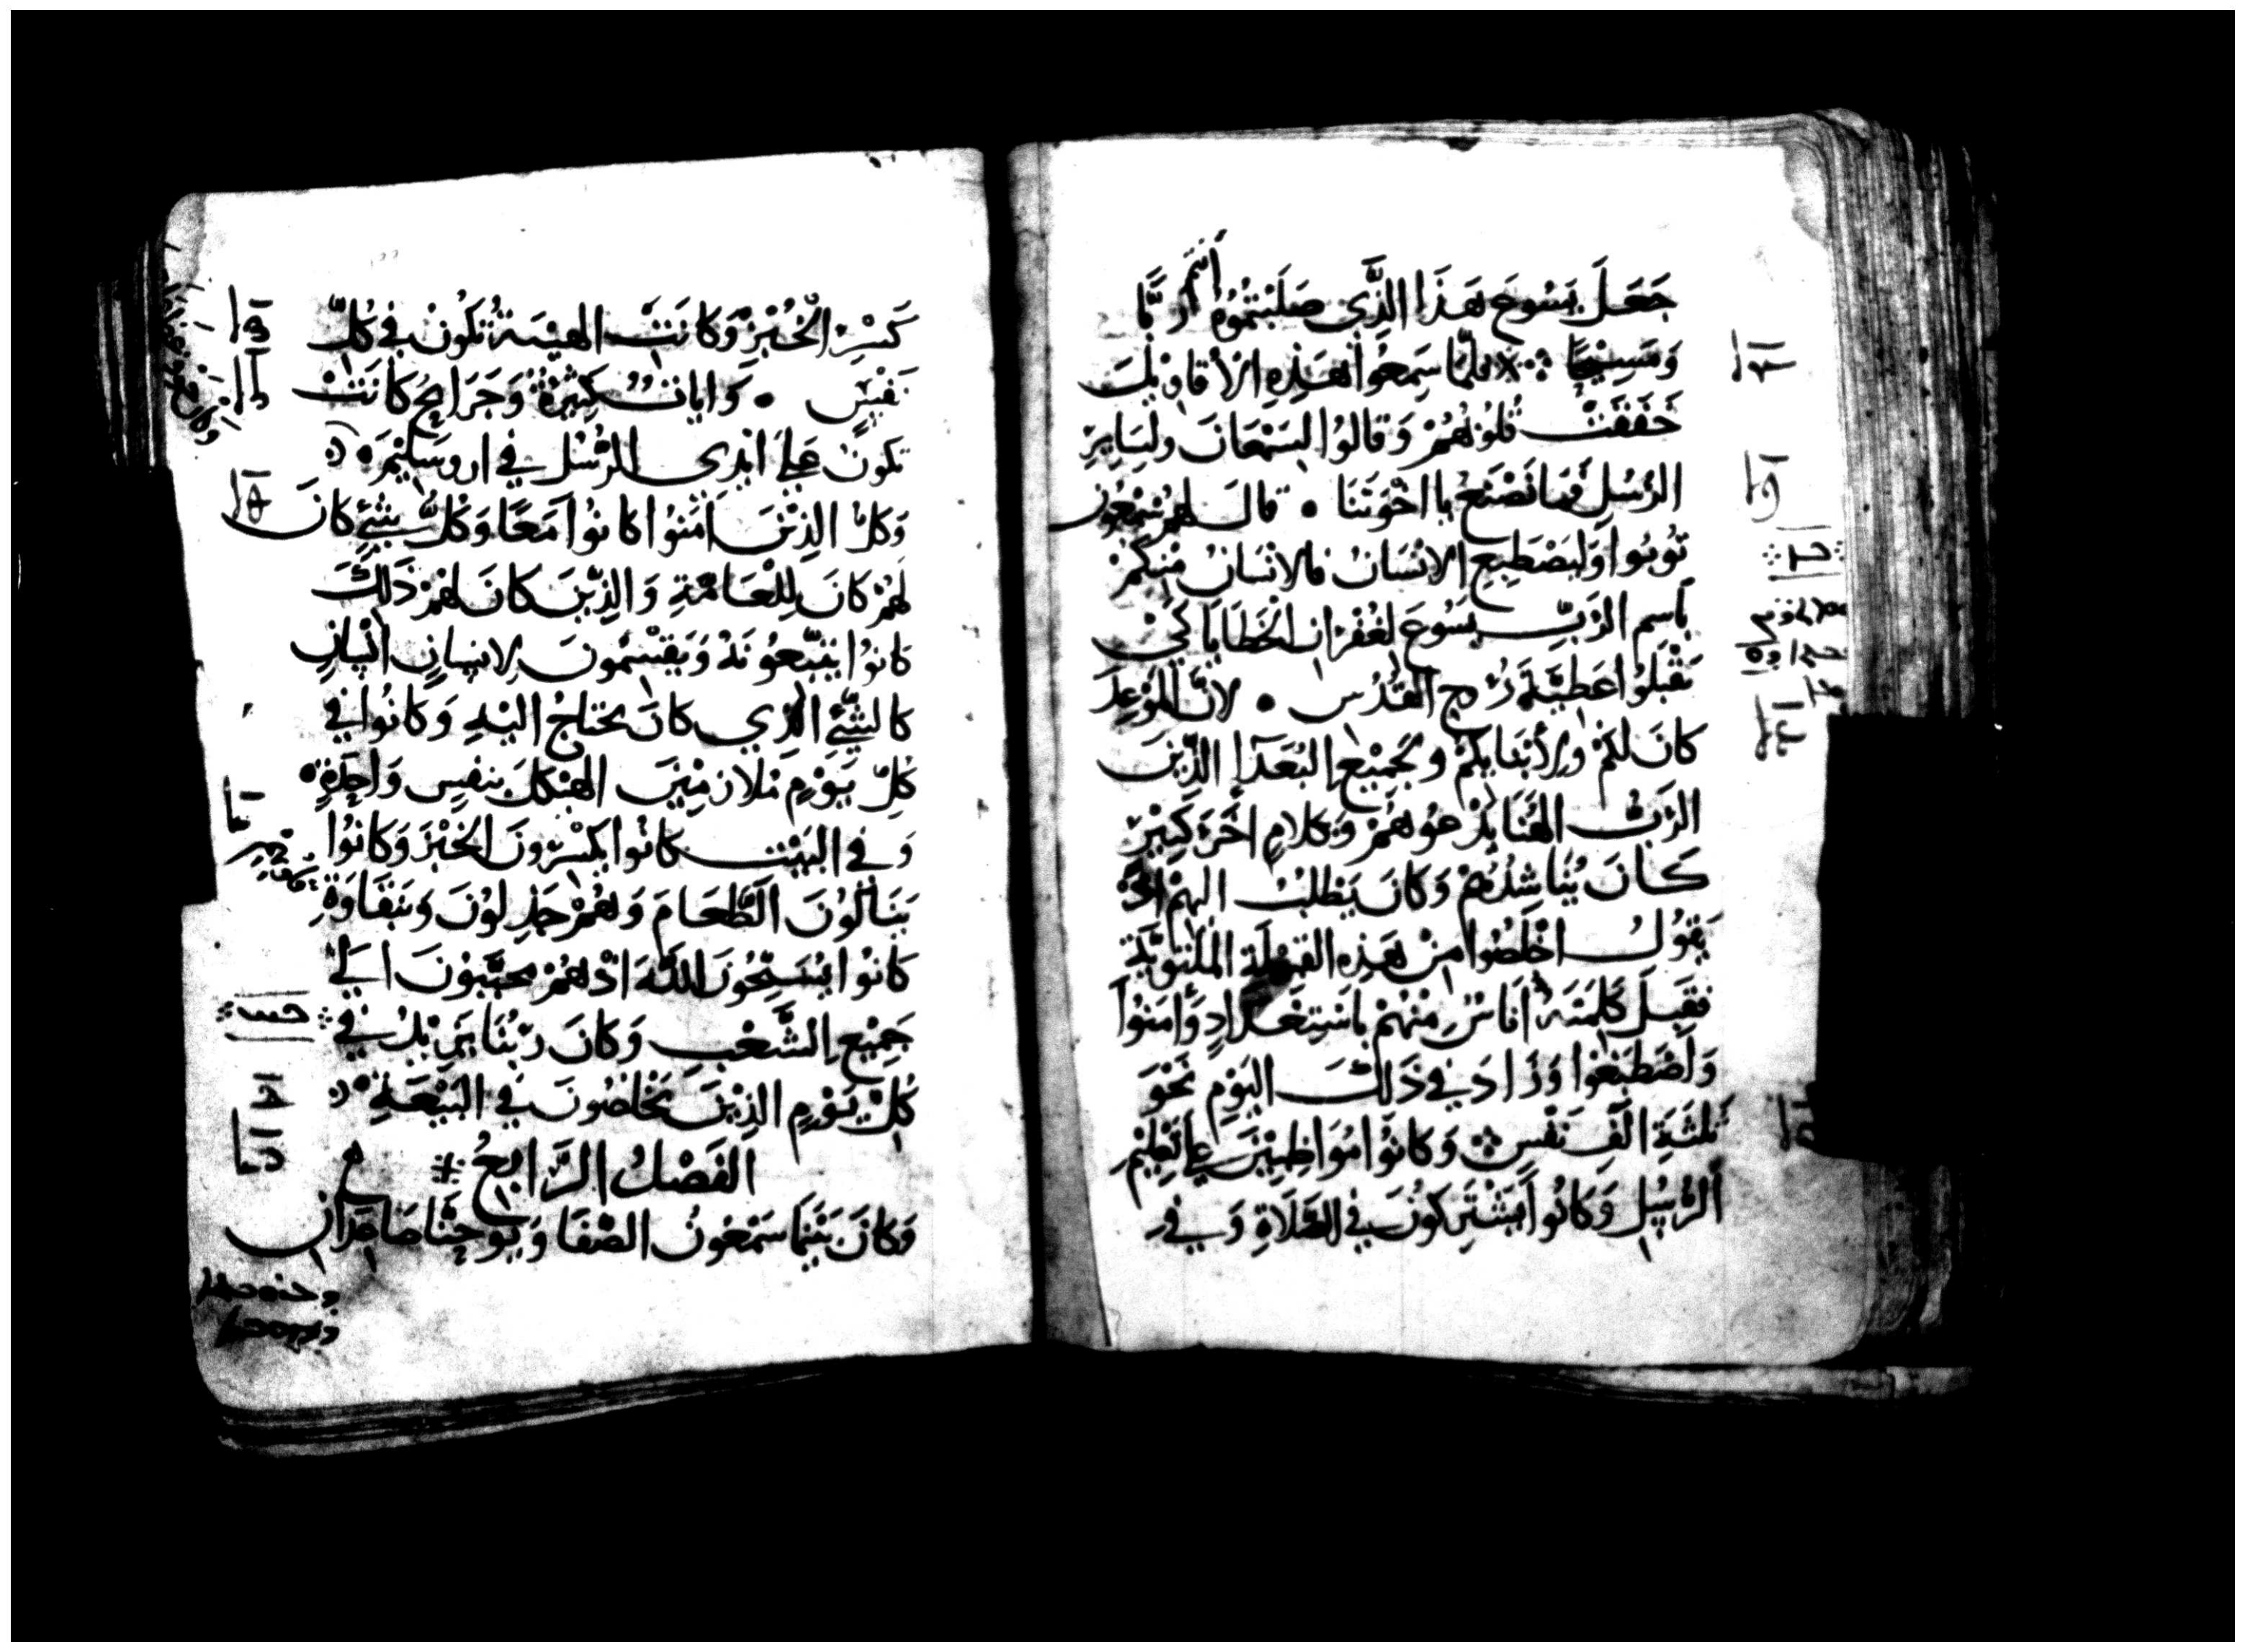 جَعَلَ يَسُوعَ هَذَا الذِّي صَلَبْتُمُوُه أَنْتُم رَبًّا
وَمَسِيْحًا ※ فلمَّا سَمِعُوا هَذِهِ الأقَاوِيْلَ
خَفَقَتْ قُلُوْبُهُمْ وَقالوُا لسَمْعَانَ ولسَايِرِ
الرُسُلِ فمَا نَصْنَعُ يا اخْوَتَنَا • قالَ لهمْ سَمْعُوْن
تُوبُوا وَليَصْطَبِعِ الانْسَانُ فالانْسَانُ مِنكمْ
بَاسِمِ الرَبِّ يَسُوعَ لغُفْرَانِ الخَطَايَا كَيْ
تَقْبَلُوا عَطِيَّةَ رُوحِ القُدُسِ • لانَّ المَوْعِدَ
كانَ لَكمْ ولأبْنَايكُمْ وَلجَمِيْعِ البُعَدَآءِ الذِّيْنَ
الرَبُّ الهُنَا يَدْعُوهُمْ وَبكلامٍ أخَرَ كَثِيْرٍ
كَانَ يُنَاشِدُهُمْ وَكانَ يَطْلُبُ اليهِمْ اذْ
يَقُولُ اخْلُصُوا مِنْ هَذِهِ القَبِيْلَةِ المُلتَوِيَّةِ
فقَبِلَ كَلِمَتَهُ أنَاسٌ مِنْهُمْ باسْتِعْدَادٍ وَأمَنُوا
وَاصْطَبَغوُا وَزَادَ فِي ذَلكَ اليَوْمِ نَحْوَ
ثلثَةِ الَفَ نَفْسٍ ※ وَكانُوا مُوَاظِبِيْنَ عَلى تَعْلِيْمِ
الرُسُلِ وَكانُوا يَشْتَرِكُونَ فِي الصَّلَاةِ وَفِي
كَسْرِ الخُبْزِ وَكانَتْ الهَيْبَةُ تَكُونُ فِي كُلِّ
نَفْسٍ • وَاياتٌ كَثِيْرَةٌ وَجَرَايحُ كَانَتْ
تكونُ عَلى ايْدِى الرُسُلِ فِي اروسَلِيْمَ
وَكلُّ الذِيْنَ امَنُوا كانُوا مَعًا وَكلُّ شَيْءٍ كانَ
لَهُمْ كانَ لِلْعَامَّةِ وَالذِّيْنَ كَانَ لهُمْ ذَلكَ
كانوُا يَتْبَعُونَهُ وَيَقْسَمُونَ لانسَانٍ انْسَانٍ
كالشَيْءِ الذِي كانَ يحتَاجُ اليْهِ وَكانُوا فِي
كلِّ يَوْمٍ مُلازِمِيْنَ الهَيْكلَ بنفسٍ وَاحِدَةٍ
وَفِي البَيْتِ كانُوا يَكسْرُونَ الخُبْزَ وَكانُوا
يَنَالُونَ الطَّعَامَ وَهُمْ جَذِلُونَ وَبنَقَاوَةٍ
كانوا يُسَبِّحُونَ اللهَ اذْ هُمْ محَبَّبُونَ الَي
جَمِيْعِ الشَّعْبِ وَكانَ رَبُنَا يَزِيْدُ فِي
كُلِّ يَوْمٍ الذِيْنَ يَخْلصُونَ فِي البَيْعَةِ
الفَصْلُ الرَّابِعُ
وَكانَ بَيْنَمَا سَمْعُونُ الصْفَا وَيُوحَنْا صَاعِدَانِ